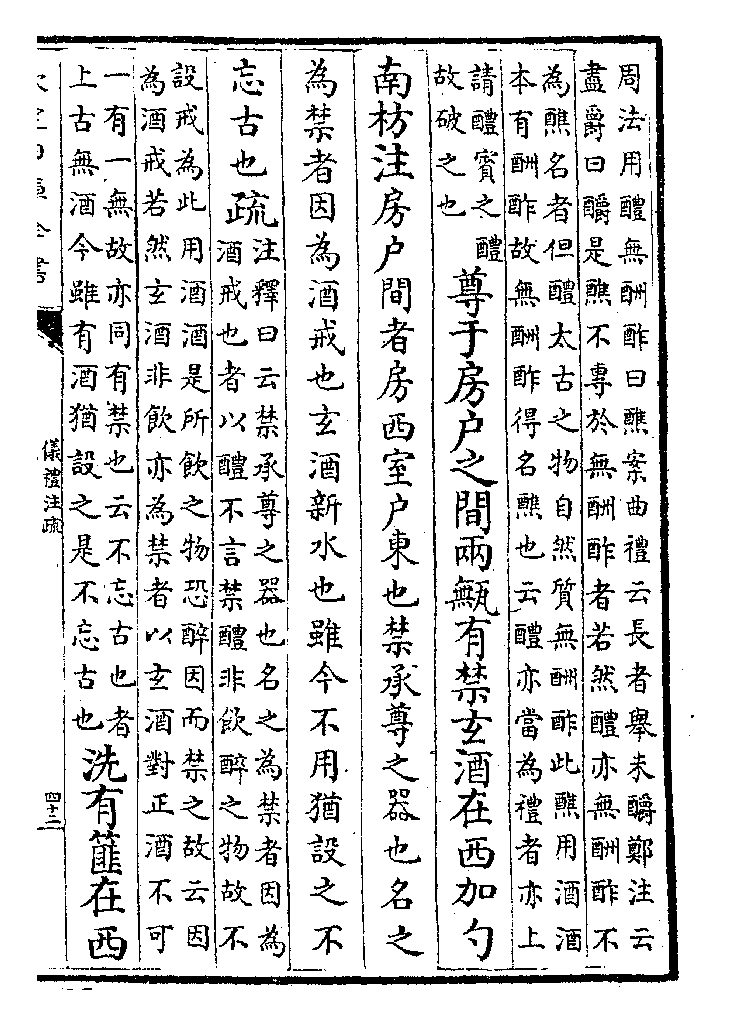 周法用醴無酬酢曰醮案曲禮云長者舉未釂鄭注云
盡爵曰釂是醮不專於無酬酢者若然醴亦無酬酢不
為醮名者但醴太古之物自然質無酬酢此醮用酒酒
本有酬酢故無酬酢得名醮也云醴亦當為禮者亦上
請醴賓之醴
故破之也
尊于房户之間兩甒有禁玄酒在西加勺
南枋注房户間者房西室户東也禁承尊之器也名之
為禁者因為酒戒也玄酒新水也雖今不用猶設之不
忘古也疏
注釋曰云禁承尊之器也名之為禁者因為
酒戒也者以醴不言禁醴非飲醉之物故不
設戒為此用酒酒是所飲之物恐醉因而禁之故云因
為酒戒若然玄酒非飲亦為禁者以玄酒對正酒不可
一有一無故亦同有禁也云不忘古也者
上古無酒今雖有酒猶設之是不忘古也
洗有篚在西
儀禮注疏
四十二